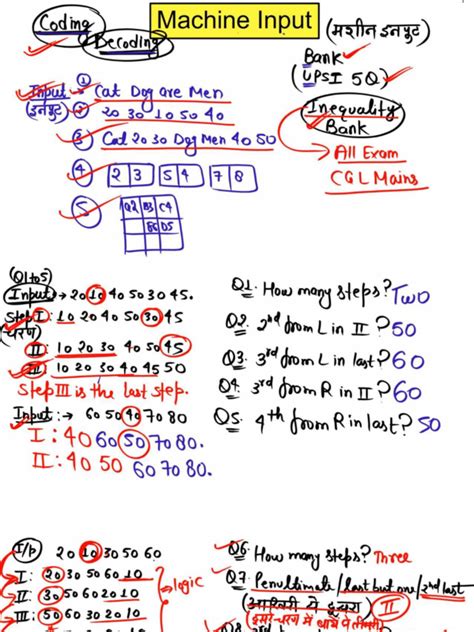 Coding
Decoding
Machine Input (मशीन इनपुट)
Bank
(UPSI 5Q)
Input → ① Cat Dog are Men
(इनपुट) ② 20 30 10 50 40
③ Cat 20 30 Dog Men 40 50
④ 2 3 5 4 7 8
⑤ Q2 B3 C4
B6 D5
Inequality
Bank
→ All Exam
CGL Mains
(Q1 to 5)
Input :→ 20 10 40 50 30 45.
Step I : 10 20 40 50 30 45
(चरण)
II : 10 20 30 40 50 45
III : 10 20 30 40 45 50
Step III is the last step.
Input :→ 60 50 40 70 80
I : 40 60 50 70 80.
II : 40 50 60 70 80.
Q1. How many steps? Two
Q2. 2nd from L in II ? 50
Q3. 3rd from L in last? 60
Q4. 3rd from R in II ? 60
Q5. 4th from R in last? 50
I/p 20 10 30 50 60
I : 20 30 50 60 10
II : 30 50 60 20 10
III : 50 60 30 20 10
→ logic
Q6. How many steps? Three
Q7. Penultimate/last but one/2nd last
II
Q8.